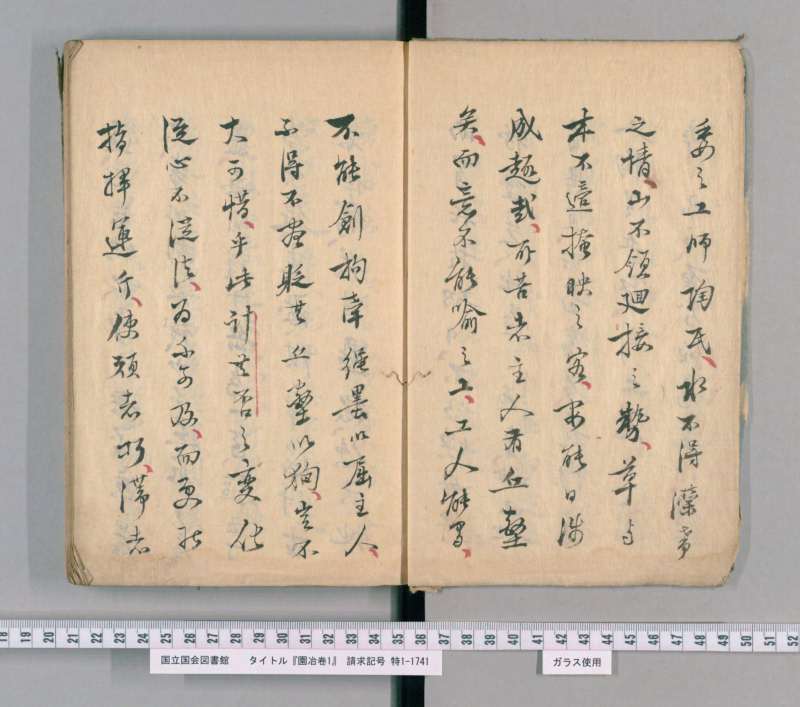 委之工師陶氏水不得瀠帶
之情山不領廻接之勢草与
木不適掩映之容安能日涉
成趣哉所苦者主人有丘壑
矣而意不能喻之工工人能守
不能創拘牽繩墨以屈主人
不得不盡貶其丘壑以狥豈不
大可惜乎此計無否之變化
從心不從法為不可及而更能
指揮運斤使頑者巧滯者
18 19 20 21 22 23 24 25 26 27 28 29 30 31 32 33 34 35 36 37 38 39 40 41 42 43 44 45 46 47 48 49 50 51 52
国立国会図書館 タイトル『園冶巻1』 請求記号 特1-1741
ガラス使用